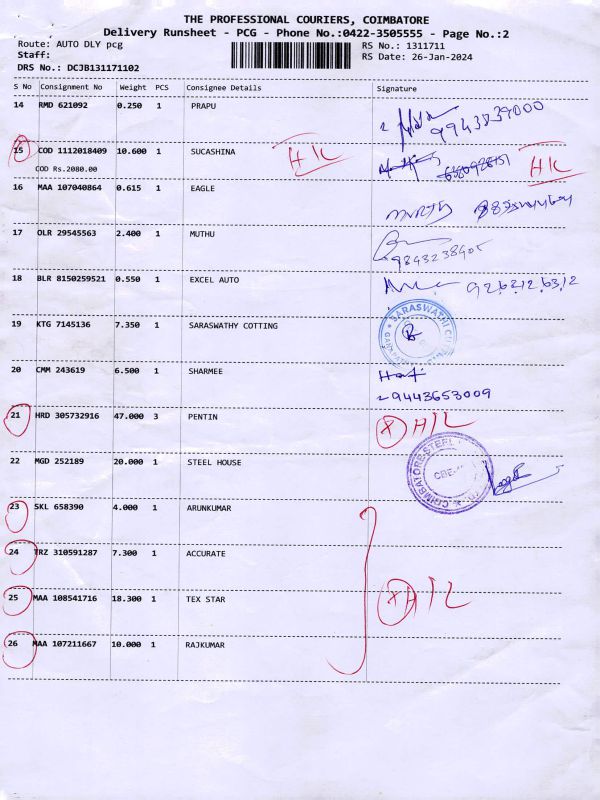 THE PROFESSIONAL COURIERS, COIMBATORE
Delivery Runsheet - PCG - Phone No.:0422-3505555 - Page No.:2
Route: AUTO DLY pcg
RS No.: 1311711
Staff:
RS Date: 26-Jan-2024
DRS No.: DCJB131171102
S No Consignment No Weight PCS Consignee Details Signature
14 RMD 621092 0.250 1 PRAPU
15 COD 1112018409 10.600 1 SUCASHINA
COD Rs.2080.00
16 MAA 107040864 0.615 1 EAGLE
17 OLR 29545563 2.400 1 MUTHU
9843238905
18 BLR 8150259521 0.550 1 EXCEL AUTO 9262126312
19 KTG 7145136 7.350 1 SARASWATHY COTTING
SARASWATHI
20 CMM 243619 6.500 1 SHARMEE
9443653009
21 HRD 305732916 47.000 3 PENTIN
22 MGD 252189 20.000 1 STEEL HOUSE
COIMBATORE STEEL
CBE
23 SKL 658390 4.000 1 ARUNKUMAR
24 TRZ 310591287 7.300 1 ACCURATE
25 MAA 108541716 18.300 1 TEX STAR
26 MAA 107211667 10.000 1 RAJKUMAR